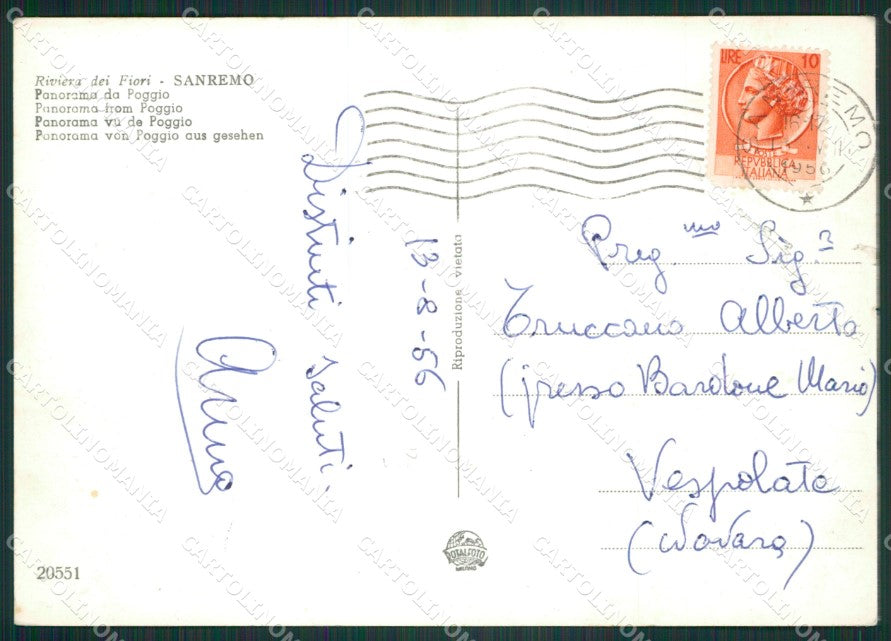 Riviera dei Fiori - SANREMO
Panorama da Poggio
Panorama from Poggio
Panorama vu de Poggio
Panorama von Poggio aus gesehen
Distinti saluti.
13-8-56
Riproduzione vietata
LIRE 10
REPVBBLICA
ITALIANA
1956
Preg.mo Sig.a
Truccano Alberta
(presso Bardone Mario)
Vespolate
(Novara)
TOTALFOTO
MILANO
20551
CARTOLINOMANIA